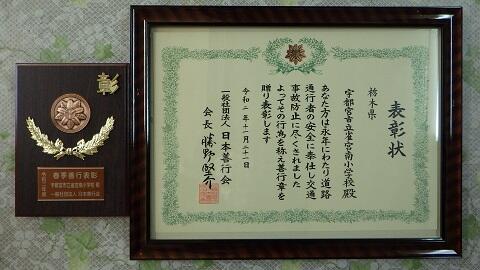 彰
春季善行表彰
一般社団法人 日本善行会
表彰状
栃木県
宇都宮市立雀宮南小学校殿
あなた方は永年にわたり道路
通行者の安全に奉仕し交通
事故防止に尽くされました
よってその行為を称え善行章を
贈り表彰します
令和二年十一月二十一日
一般社団法人 日本善行会
会長 勝野堅介